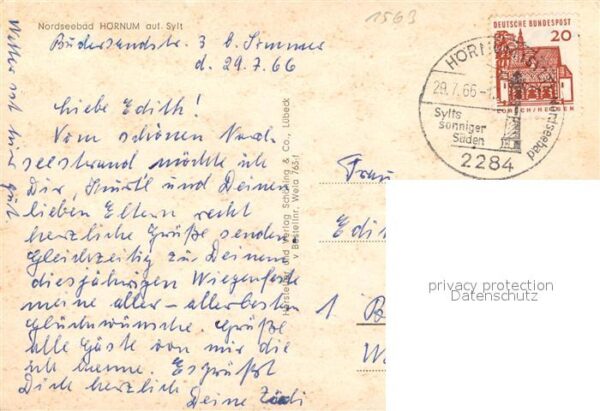 Nordseebad HÖRNUM auf Sylt
1563
Budersandstr. 3 b. Simmer
d. 29.7.66
Liebe Edith!
Vom schönen Nord-
seestrand möchte ich
Dir, und Deinen
lieben Eltern recht
herzliche Grüße senden.
Gleichzeitig zu Deinem
diesjährigen Wiegenfeste
meine aller-allerbesten
Glückwünsche. Grüße
alle Gäste von mir die
ich kenne. Es grüßt
Dich herzlich
Deine
Wetter ist hier gut.
Hersteller und Verlag Schöning & Co., Lübeck
Bestellnr. Wela 763
DEUTSCHE BUNDESPOST
20
HÖRNUM
29.7.66
Sylts
sonniger
Süden
Nordseebad
2284
Frau
Edit
1 B
W
privacy protection
Datenschutz